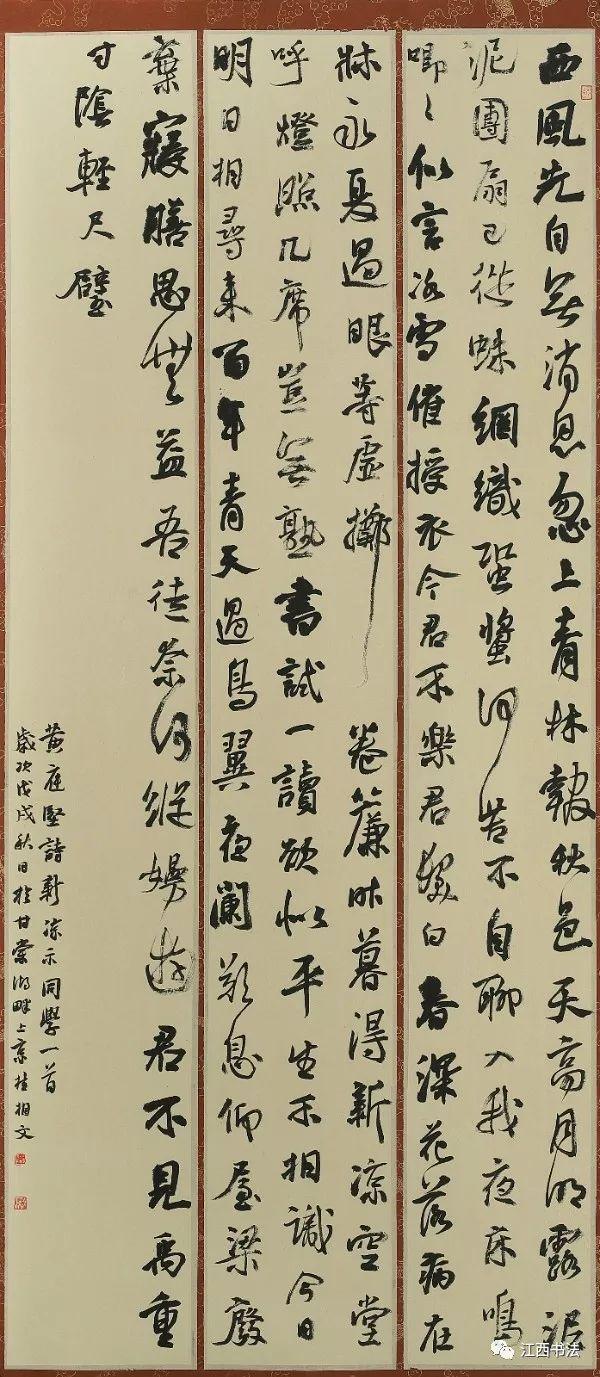 西風先自無消息忽上青林報秋色天高月明露泥
泥團扇已從蛛網織蛩螿何苦不自聊入我夜床鳴
唧〻似言冰雪催授衣今君不樂君髮白春深花落病在
牀永夏過眼等虛擲 卷簾昨暮得新涼空堂
呼燈照几席豈無熟書試一讀欲似平生不相識今日
明日相尋來百年青天過鳥翼夜闌歎息仰屋梁廢
棄寢膳思無益吾徒奈何縱嬉遊君不見禹重
寸陰輕尺璧
黃庭堅詩新涼示同學一首
歲次戊戌秋日於甘棠湖畔上京桂相文
江西书法